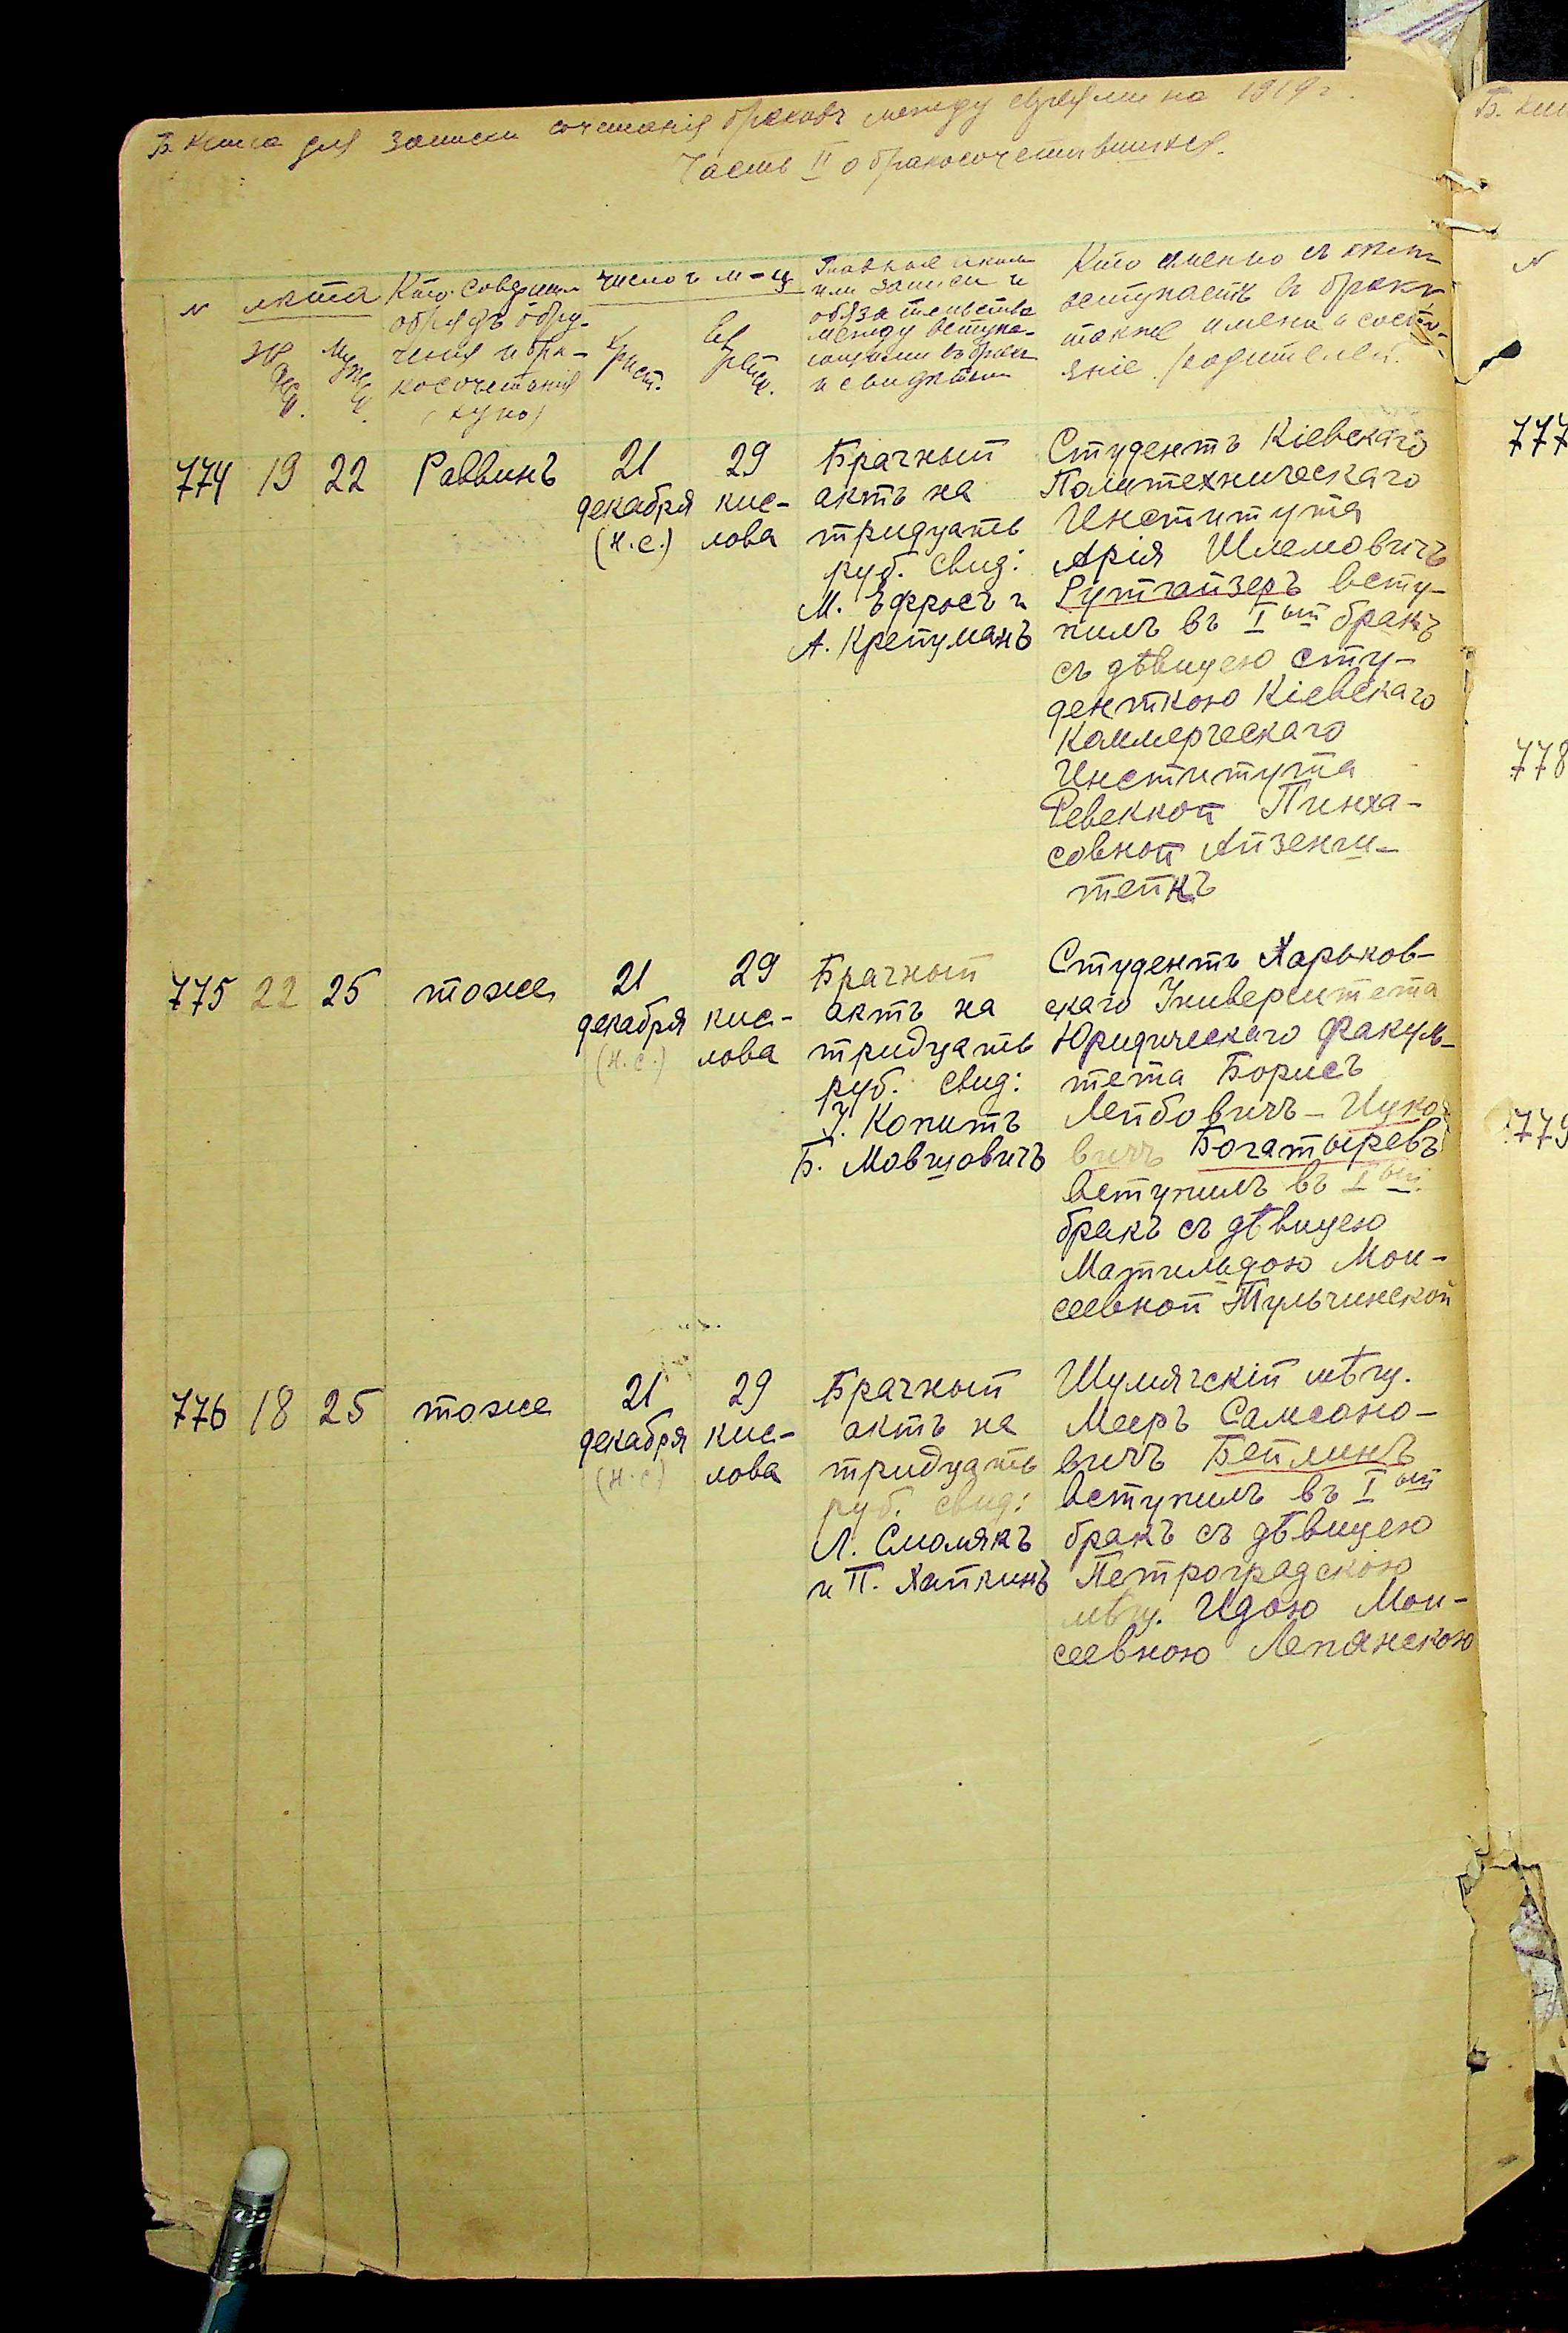 Б. Книга для записи сочетанія браковъ между евреями на 1919 г.
Часть II о бракосочетавшихся.
N лѣта
Женск. Мужск.
Кто совершал
обрядъ обру-
ченія и бра-
косочетанія
(хупо)
число и м-ц
Христ. Еврейск.
Главные акты
или записи и
обязательства
между вступа-
ющими въ бракъ
и свидѣтели
Кто именно съ кѣмъ
вступаетъ въ бракъ
также имена и состо-
яніе родителей.
774 19 22 Раввинъ
21
декабря
(н.с.)
29
кис-
лова
Брачный
актъ на
тридцать
руб. Свид:
М. Эфросъ и
А. Крейчманъ
Студентъ Кіевскаго
Политехническаго
Института
Арія Шлемовичъ
Гутгайзеръ всту-
пилъ въ Iый бракъ
съ дѣвицею сту-
денткою Кіевскаго
Коммерческаго
Института
Ревеккой Пинха-
совной Айзенш-
тейнъ
775 22 25 тоже
21
декабря
(н.с.)
29
кис-
лова
Брачный
актъ на
тридцать
руб. Свид:
У. Копитъ
Б. Мовшовичъ
Студентъ Харьков-
скаго Университета
Юридическаго Факуль-
тета Борисъ
Лейбовичъ-Ицко-
вичъ Богатыревъ
вступилъ въ Iый
бракъ съ дѣвицею
Матильдою Мои-
сеевной Тульчинской
776 18 25 тоже
21
декабря
(н.с.)
29
кис-
лова
Брачный
актъ на
тридцать
руб. Свид:
Л. Смолякъ
и П. Хайкинъ
Шумячскій мѣщ.
Мееръ Самсоно-
вичъ Бейлинъ
вступилъ въ Iый
бракъ съ дѣвицею
Петроградскою
мѣщ. Идою Мои-
сеевною Лепянскою
Б.
N
777
778
779